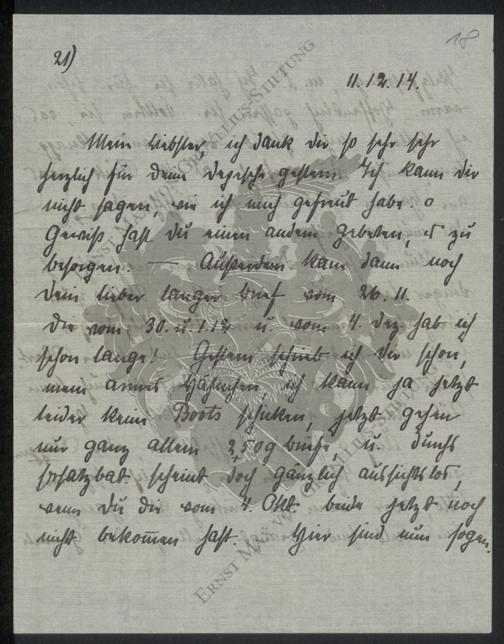 21)
18
11.12.14.
Mein liebster, ich dank dir so sehr sehr
herzlich für deine Depesche gestern. Ich kann dir
nicht sagen, wie ich mich gefreut habe.
Gewiß hast du einen andern gebeten, es zu
besorgen. — Außerdem kam dann noch
dein lieber langer Brief vom 26.11.
Die vom 30. u. 1.12 u. vom 4. Dez. hab ich
schon lange! Gestern schrieb ich dir schon,
mein armes, ich kann ja jetzt
leider kein schicken, jetzt gehen
nur ganz allein 250g Briefe u. durchs
Ersatzbat. scheint doch gänzlich aussichtslos,
wenn du die vom 4. Okt. beide jetzt noch
nicht bekommen hast. Hier sind nun sogen.
ERNST MAX VON GRAVENREUTH-STIFTUNG